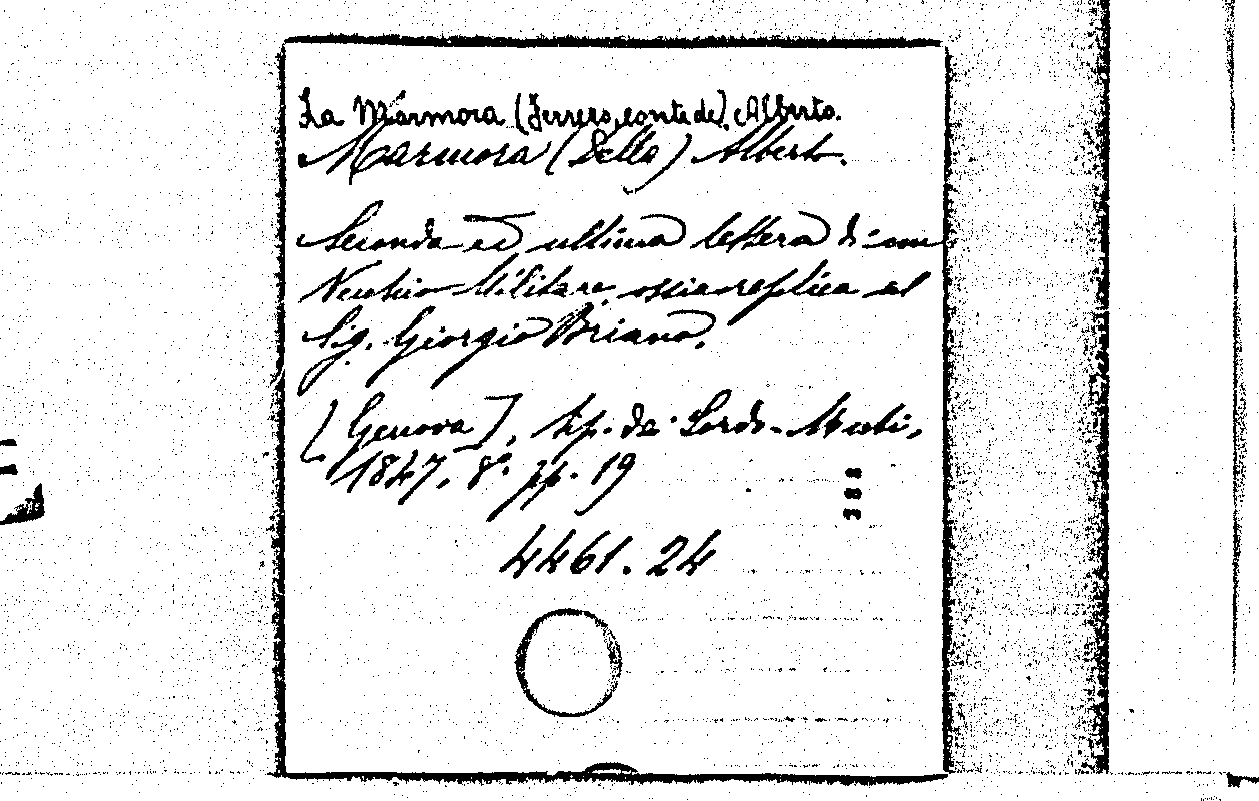 La Marmora (Ferrero, conte de), Alberto.
Marmora (Della) Alberto.
Seconda ed ultima lettera di un
Vecchio Militare, ossia replica al
Sig. Giorgio Briano.
[Genova], tip. de' Sordo-Muti,
1847. 8º. pp. 19
388
4461.24